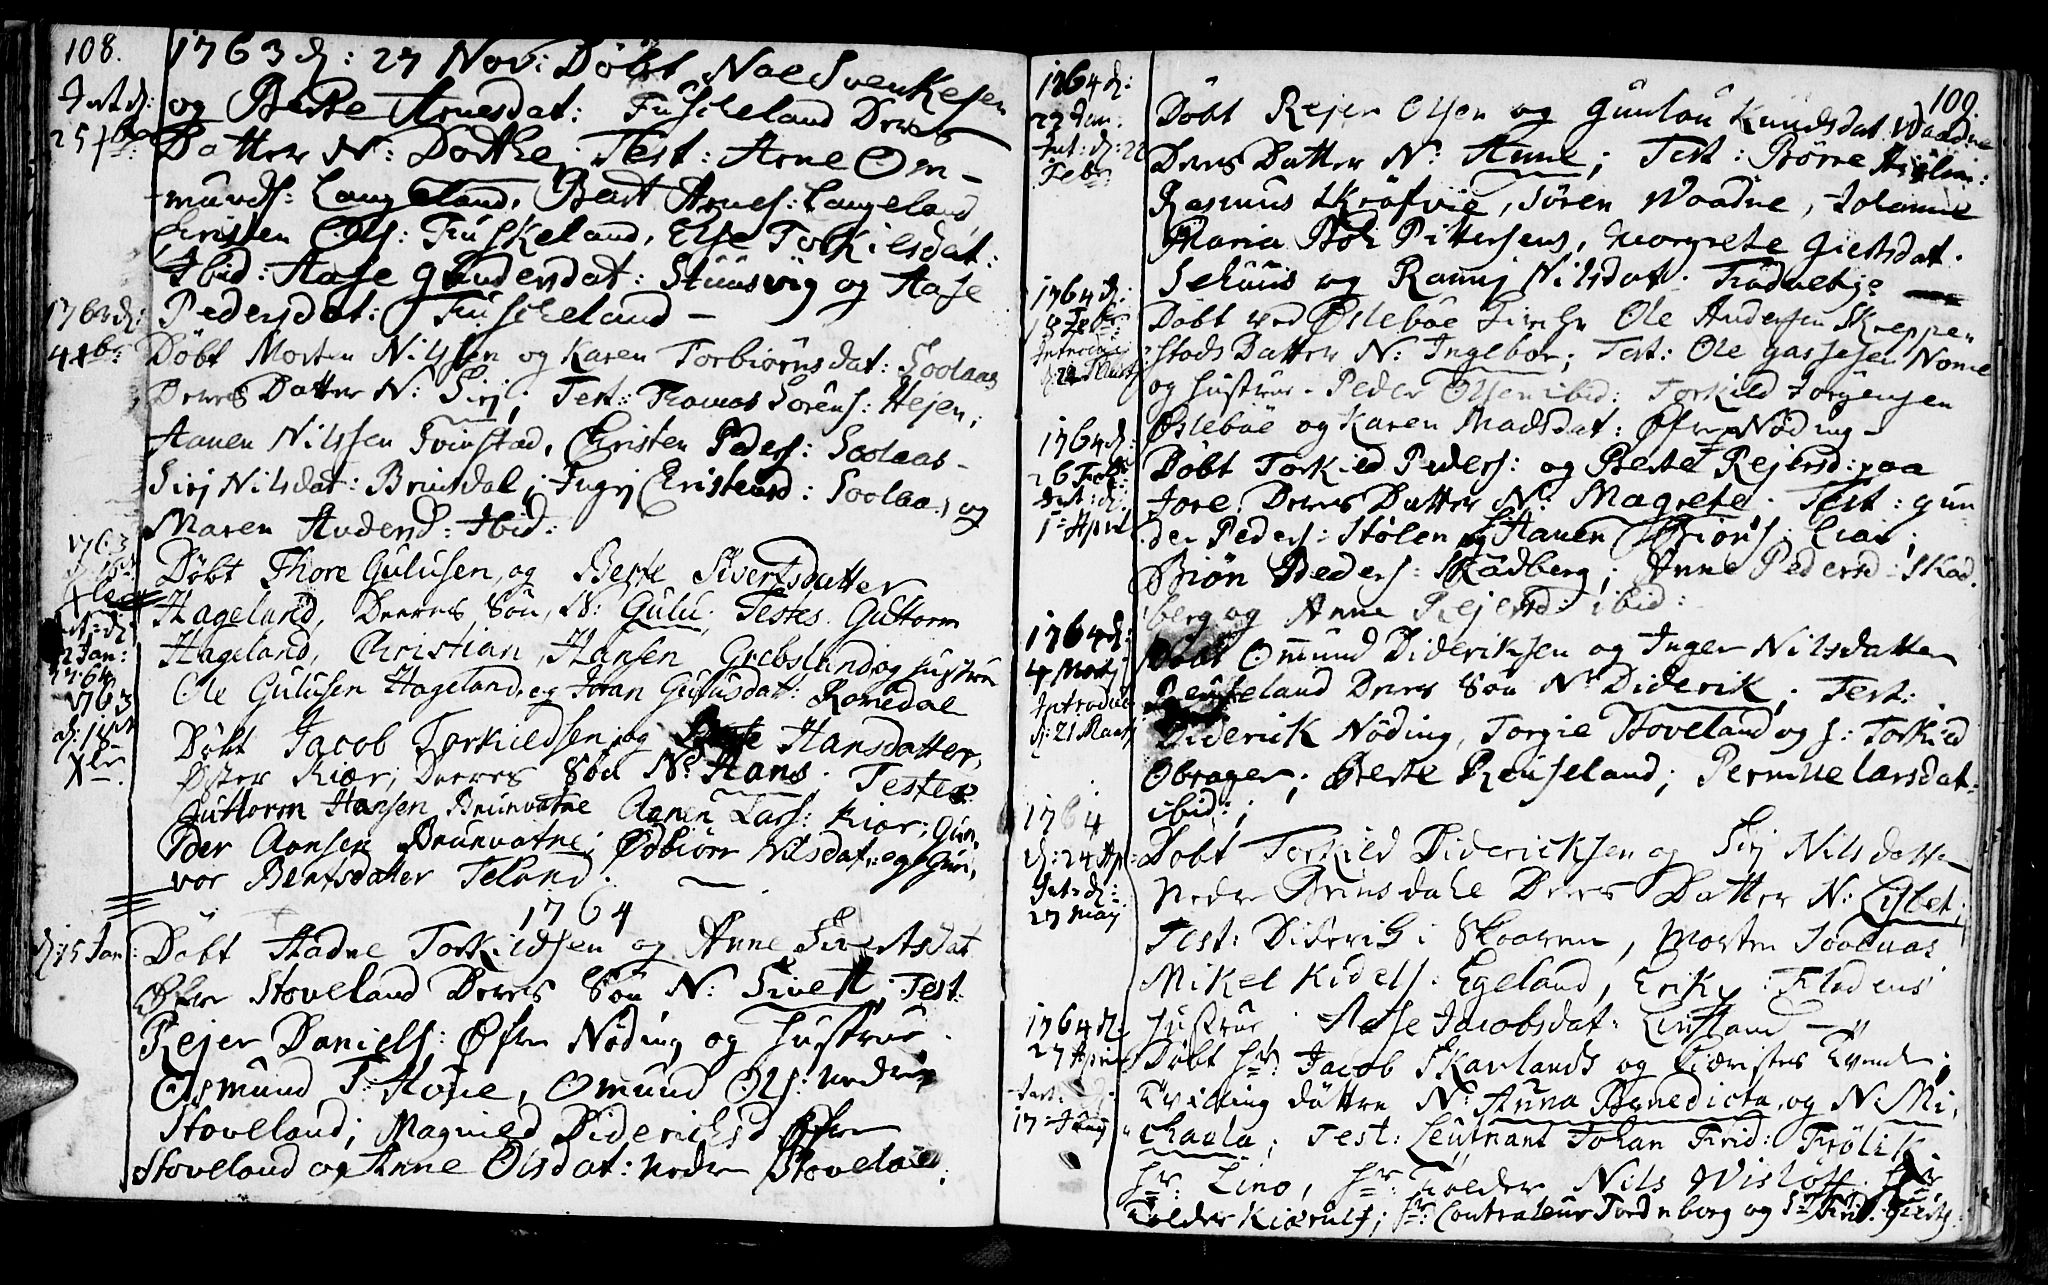 108.
1763 d: 27 Nov: Döbt Noe Svenkesen
Int d:
og Berte Arnesdat: Fuskeland Deres
Datter N: Dorthe; Test: Arne Om-
munds: Langeland, Bert Arnes: Langeland,
Christen Ols: Fuskeland, Else Torkilsdat:
Ibid: Aase Gundersdat: Stuusvig og Aase
Pedersdat: Fuskeland -
1763 d:
4 Xbr
Döbt Morten Nilssen og Karen Torbiörnsdat: Soolaas
Deres Datter N: Sirj; Test: Thomas Sörens: Hejen;
Aanen Nilssen Svinstad, Christen Peders: Soolaas-
Sirj Nilsdat: Brinsdal; Ingrj Christensd: Soolaa, og
Maren Andersd: Ibid:
1763
Döbt Thore Gulusen, og Berte Sivertsdatter
Hageland, Deeres Sön, N: Gulu. Testes. Guttorm
Int: d:
22 Jan:
1764
Hageland, Christian Hansen Grebsland og hustrue
Ole Gulusen Hageland, og Joran Gulusdat: Romedal
1763
Xbr
Döbt Jacob Torkieldsen, og Berte Hansdatter,
Öster Kiær; Deeres Sön N: Hans. Testes
Guttorm Hansen Brunvatne Aanen Lars: Kiær; Gun-
der Aansen Brunvatne; Ödbiör Nilsdat: og Guri,
vor Bentsdatter Teland.
1764
d: 15 Jan:
Döbt Aadne Torkildsen og Anne Sivertsdat
Öfre Stoveland Deres Sön N: Sivert, Test:
Rejer Daniels: Öfre Nöding og hustrue.
Osmund T: Höye, Omund Ols: nedre
Stoveland; Magnild Diderichsd Öfre
Stoveland og Anne Olsdat: nedre Stoveland.
109.
1764 d:
22 Jan:
Int: d: 26
Febr
Döbt Rejer Olsen og Gunlau Knudsdat: Waadne
Deres Datter N: Anne; Test: Börre
Rasmus Kröfvie, Sören Waadne, Johanne
Maria Boh Pittersens, Margrete Giertsdat.
Sehuus og Rannj Nilsdat. Trödnebye
1764 d:
Döbt ved Ösleböe Kirche Ole Andersen Skreppen
stads Datter N: Ingebor; Test: Ole Gassesen Nome
og hustrue - Peder Olsen ibid: Torkild Jörgensen
Ösleböe og Karen Madsdat: Öfre Nöding -
1764 d:
26 Febr:
Int: d:
1 April
Döbt Torkild Peders: og Berte Rejersd: paa
Fore. Deres Datter N: Magrete. Test: Gun
der Peders: Stölen og Aanen Biörns: Liar;
Biön Peders: Skadberg; Anne Pedersd: Skad-
berg og Anne Rejersd: ibid:
1764 d:
4 Marty
Introduc
d: 21 Marty
Döbt Ommund Dideriksen og Inger Nilsdatter
Reuseland Deres Sön N: Diderik; Test:
Diderik Nöding, Torgie Stoveland og s: Torkild
Obrager; Berte Reuseland; Pernille Larsdat:
ibid:;
1764
d: 24 Apr:
Int: d:
27 May
Döbt Torkild Didericksen og Sirj Nilsdatter
Nedre Brinsdahl Deres Datter N: Lisbet;
Test: Diderik i Skaaren, Morten Soolaas
Mikel Kidels: Egeland, Erik Fladens
hustrue, Aase Jacobsdat: Linstland -
1764 d:
27 April
17 Juny
Döbt Hr: Jacob Skarlands og Kieristes Tvende
Tvilling döttre N: Anna Benedicta, og N: Mi,
chaela; Test: Leutnant Johan Frid: Frölik.
Hr: Lino, Hr: Tolder Nils Wislöff. Hr:
Tolder Kiærulf; Hr: Contraleur Tordenborg og